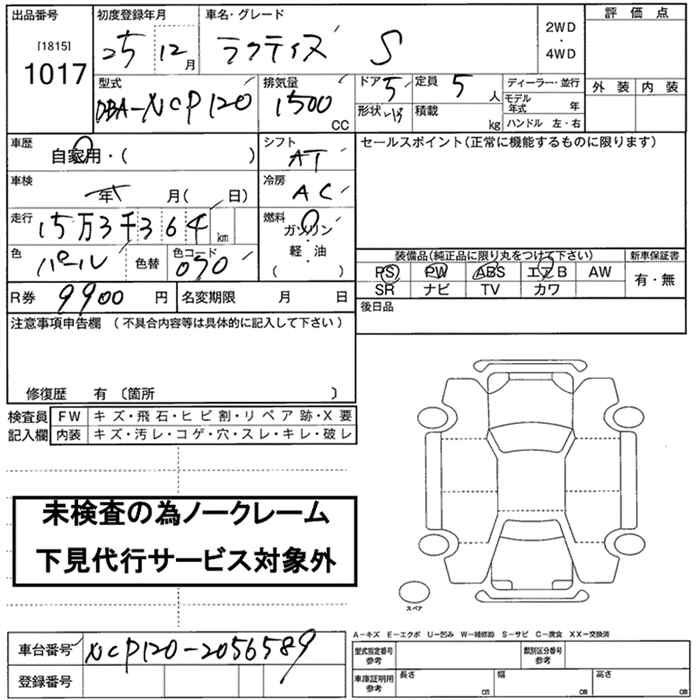 出品番号 初度登録年月 車名・グレード 評価点
[1815] 25 12月 ラクティス S 2WD・4WD
1017
型式 排気量 ドア 5 定員 5人 ディーラー・並行 外装 内装
DBA-NCP120 1500 CC 形状 積載 kg モデル年式 年
ハンドル 左・右
車歴 自家用・( ) シフト AT セールスポイント(正常に機能するものに限ります)
車検 年 月( 日) 冷房 AC
走行 15万3千364km 燃料 ガソリン・軽油・( )
色 パール 色替 色コード 070 装備品(純正品に限り丸をつけて下さい) 新車保証書
PS PW ABS エアB AW 有・無
R券 9900円 名変期限 月 日 SR ナビ TV カワ
後日品
注意事項申告欄 (不具合内容等は具体的に記入して下さい)
修復歴 有 〔箇所 〕
検査員 FW キズ・飛石・ヒビ割・リペア跡・X要
記入欄 内装 キズ・汚レ・コゲ・穴・スレ・キレ・破レ
未検査の為ノークレーム
下見代行サービス対象外
スペア
A-キズ E-エクボ U-凹み W-補修跡 S-サビ C-腐食 XX-交換済
車台番号 NCP120-2056589 型式指定番号 参考 類別区分番号 参考
登録番号 車庫証明用 参考 長さ cm 幅 cm 高さ cm